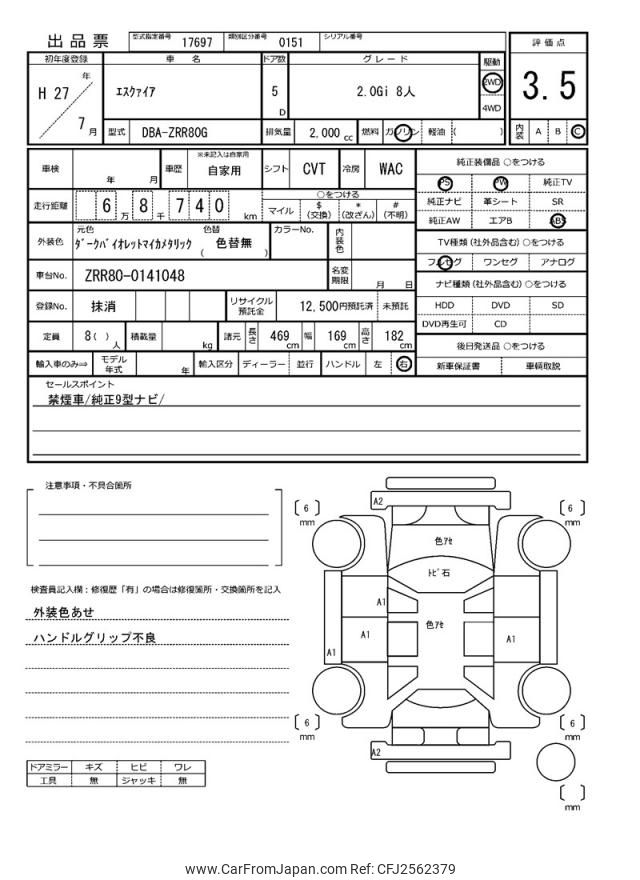 出品票 型式指定番号 17697 類別区分番号 0151 シリアル番号
評価点
3.5
初年度登録 車名 ドア数 グレード 駆動
H 27 年 7 月
エスクァイア 5 D 2.0Gi 8人 2WD 4WD
型式 DBA-ZRR80G 排気量 2,000 cc 燃料 ガソリン 軽油 ( )
内装 A B C
車検 年 月 車歴 ※未記入は自家用 自家用 シフト CVT 冷房 WAC
走行距離 6 万 8 千 7 4 0 km ○をつける
マイル $(交換) *(改ざん) #(不明)
外装色 元色 ダークバイオレットマイカメタリック 色替 ( 色替無 ) カラーNo. 内装色
車台No. ZRR80-0141048 名変期限 月 日
登録No. 抹消 リサイクル預託金 12,500円預託済 未預託
定員 8( )人 積載量 kg 諸元 長さ 469 cm 幅 169 cm 高さ 182 cm
輸入車のみ⇒ モデル年式 年 輸入区分 ディーラー 並行 ハンドル 左 右
純正装備品 ○をつける
PS PW 純正TV
純正ナビ 革シート SR
純正AW エアB ABS
TV種類(社外品含む)○をつける
フルセグ ワンセグ アナログ
ナビ種類(社外品含む)○をつける
HDD DVD SD
DVD再生可 CD
後日発送品 ○をつける
新車保証書 車輌取説
セールスポイント
禁煙車/純正9型ナビ/
注意事項・不具合箇所
検査員記入欄：修復歴「有」の場合は修復箇所・交換箇所を記入
外装色あせ
ハンドルグリップ不良
ドアミラー キズ ヒビ ワレ
工具 無 ジャッキ 無
A2
6 mm
6 mm
色アセ
トビ石
A1
色アセ
A1
A1
A1
6 mm
6 mm
A2
mm
www.CarFromJapan.com Ref: CFJ2562379